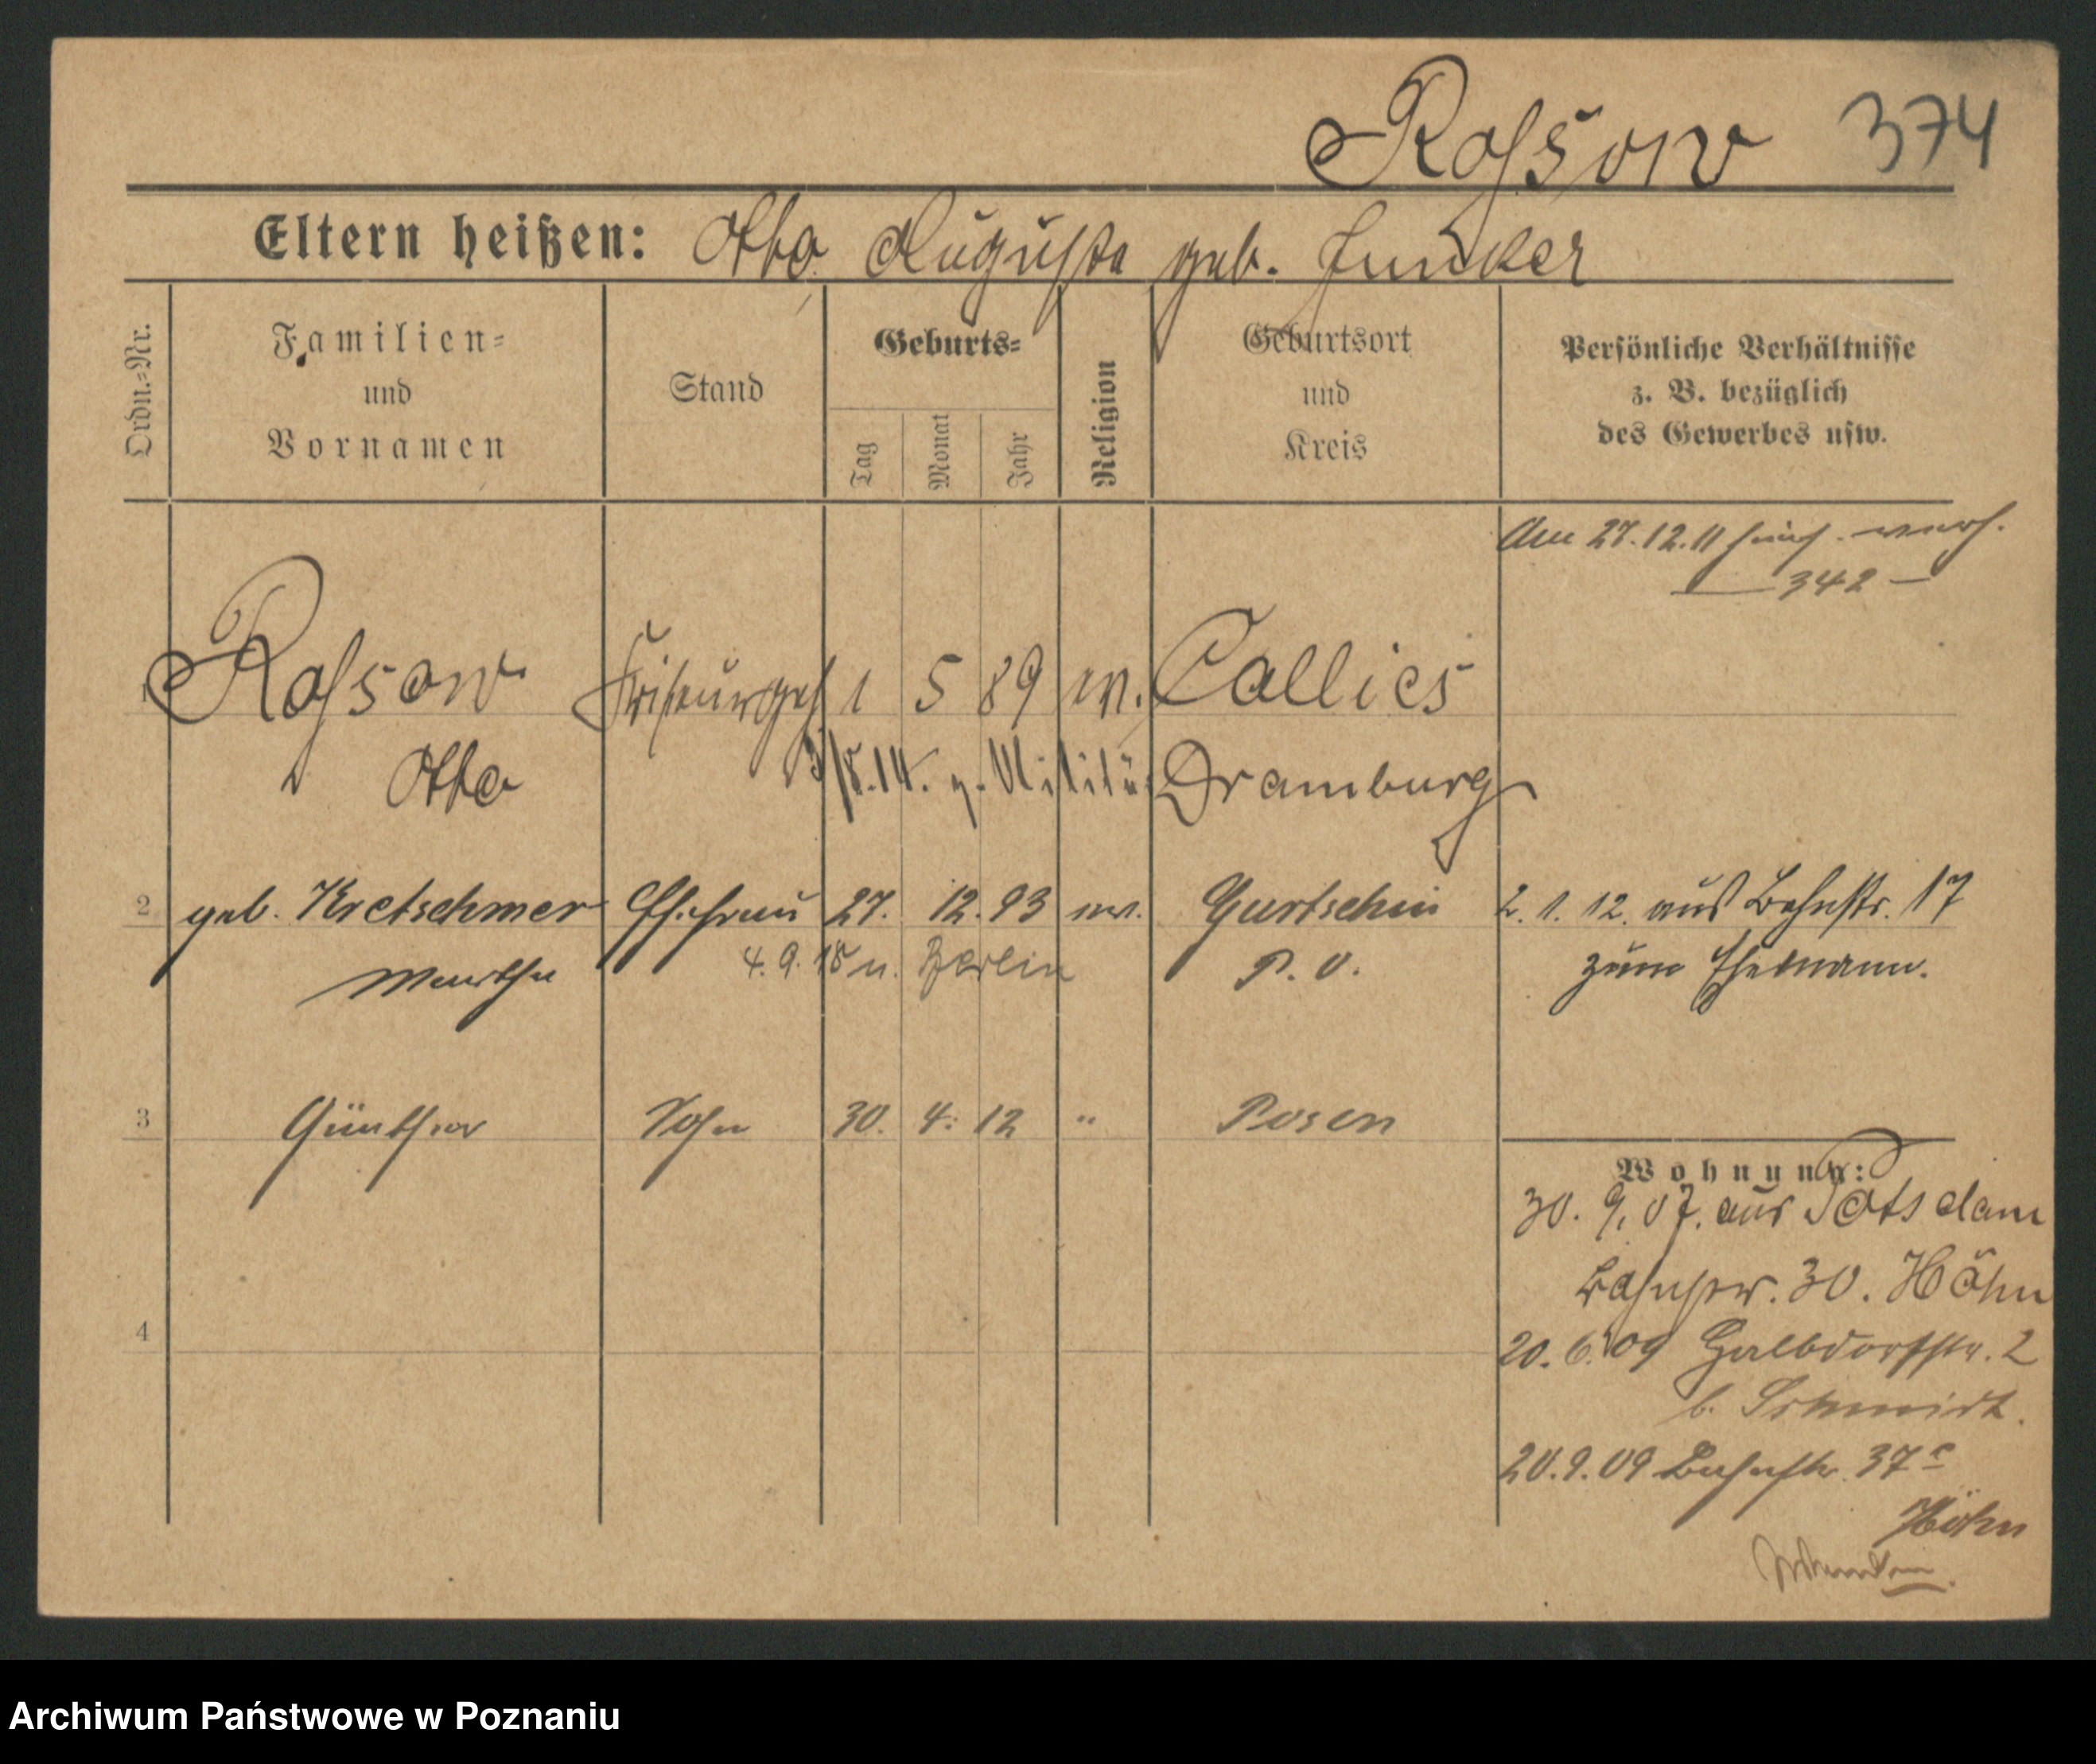 Roßow 374
Eltern heißen: Otto Auguste geb. Junker
Ordn.=Nr.
Familien=
und
Vornamen
Stand
Geburts=
Tag
Monat
Jahr
Religion
Geburtsort
und
Kreis
Persönliche Verhältnisse
z. B. bezüglich
des Gewerbes usw.
Am 27.12.11 hier verh.
342 —
1 Roßow Friseurgeh 1 5 89 ev. Callies
Otto 3/8.14. z. Militär Dramburg
2 geb. Kretschmer Ehefrau 27. 12. 93 ev. Gurtschin 2. 1. 12. aus Bahnstr. 17
Martha 4. 9. 18 n. Berlin P. O. zum Ehemann.
3 Günther Sohn 30. 4. 12 " Posen
Wohnung:
30. 9. 07. aus Potsdam
30. Höhn
4
20. 6. 09 2
b. Schmidt.
20. 9. 09 Bahnstr. 37c
Höhn